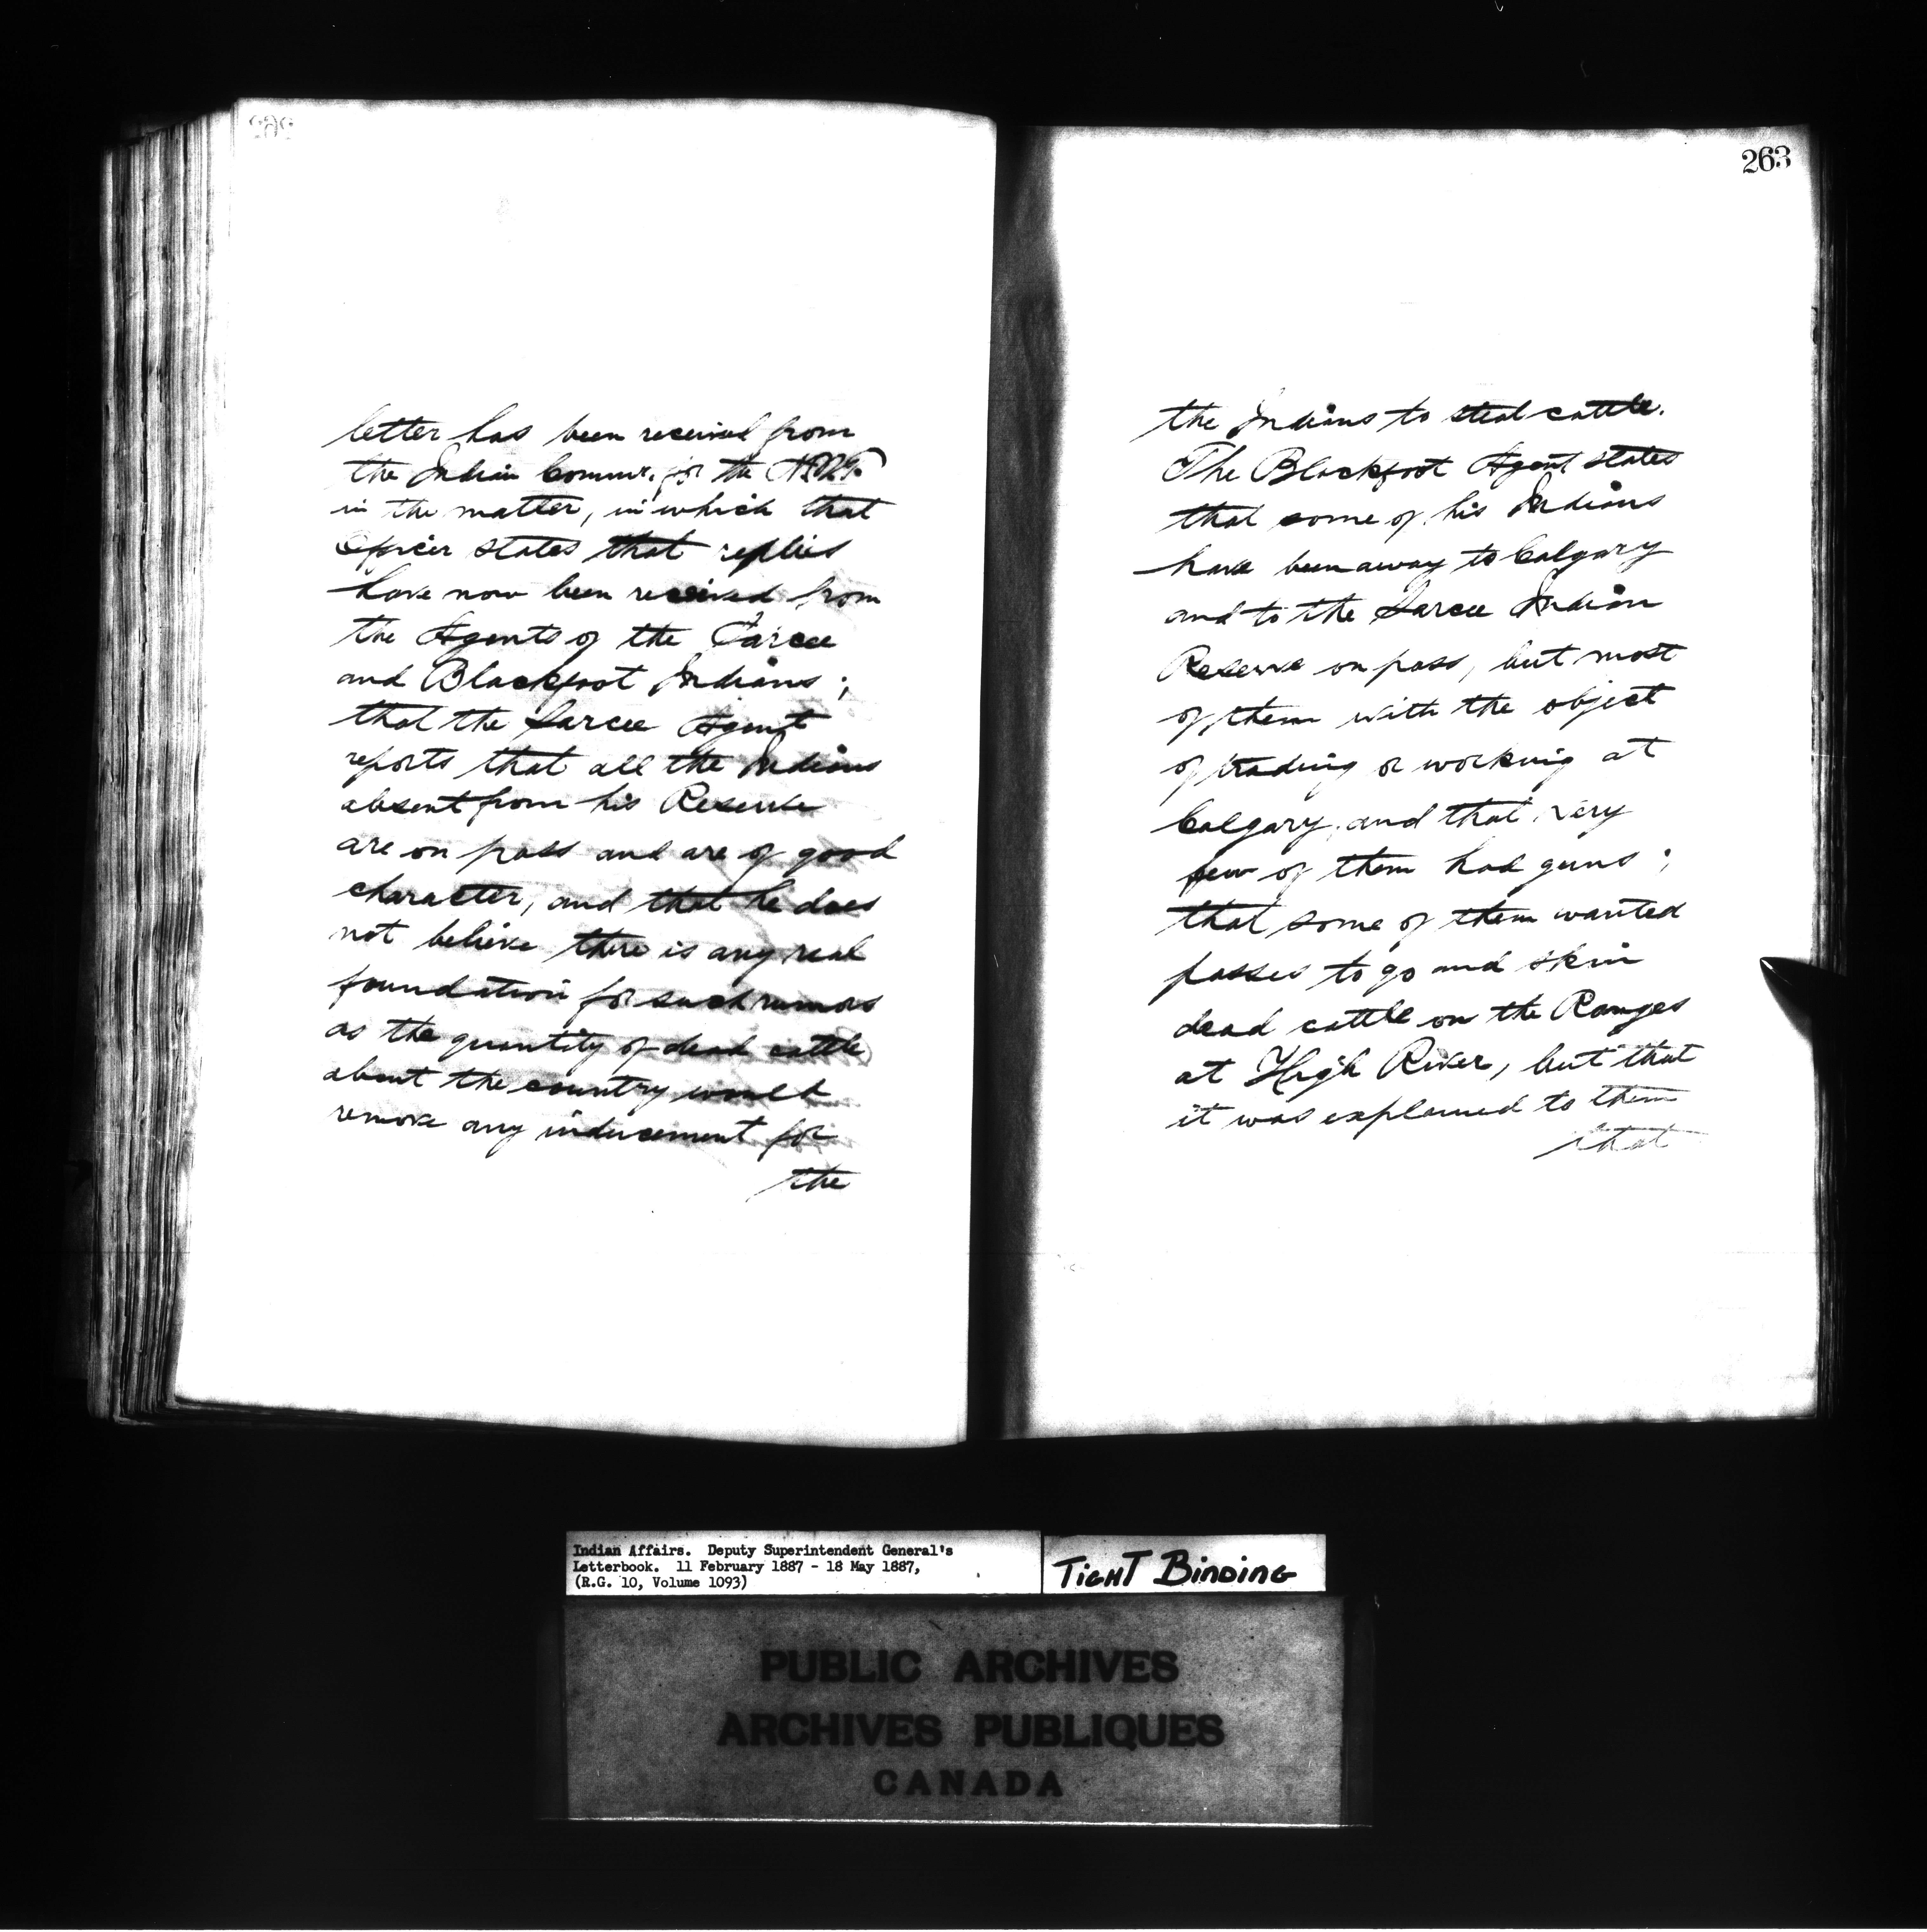 letter has been received from
the Indian Commr. for the N.W.T.
in the matter, in which that
Officer states that replies
have now been received from
the Agents of the Sarcee
and Blackfoot Indians;
that the Sarcee Agent
reports that all the Indians
absent from his Reserve
are on pass and are of good
character, and that he does
not believe there is any real
foundation for such rumors
as the quantity of dead cattle
about the country would
remove any inducement for
the
263
the Indians to steal cattle.
The Blackfoot Agent states
that some of his Indians
have been away to Calgary
and to the Sarcee Indian
Reserve on pass, but most
of them with the object
of trading or working at
Calgary, and that very
few of them had guns;
that some of them wanted
passes to go and skin
dead cattle on the Ranges
at High River, but that
it was explained to them
that
Indian Affairs. Deputy Superintendent General's
Letterbook. 11 February 1887 - 18 May 1887,
(R.G. 10, Volume 1093)
TIGHT BINDING
PUBLIC ARCHIVES
ARCHIVES PUBLIQUES
CANADA